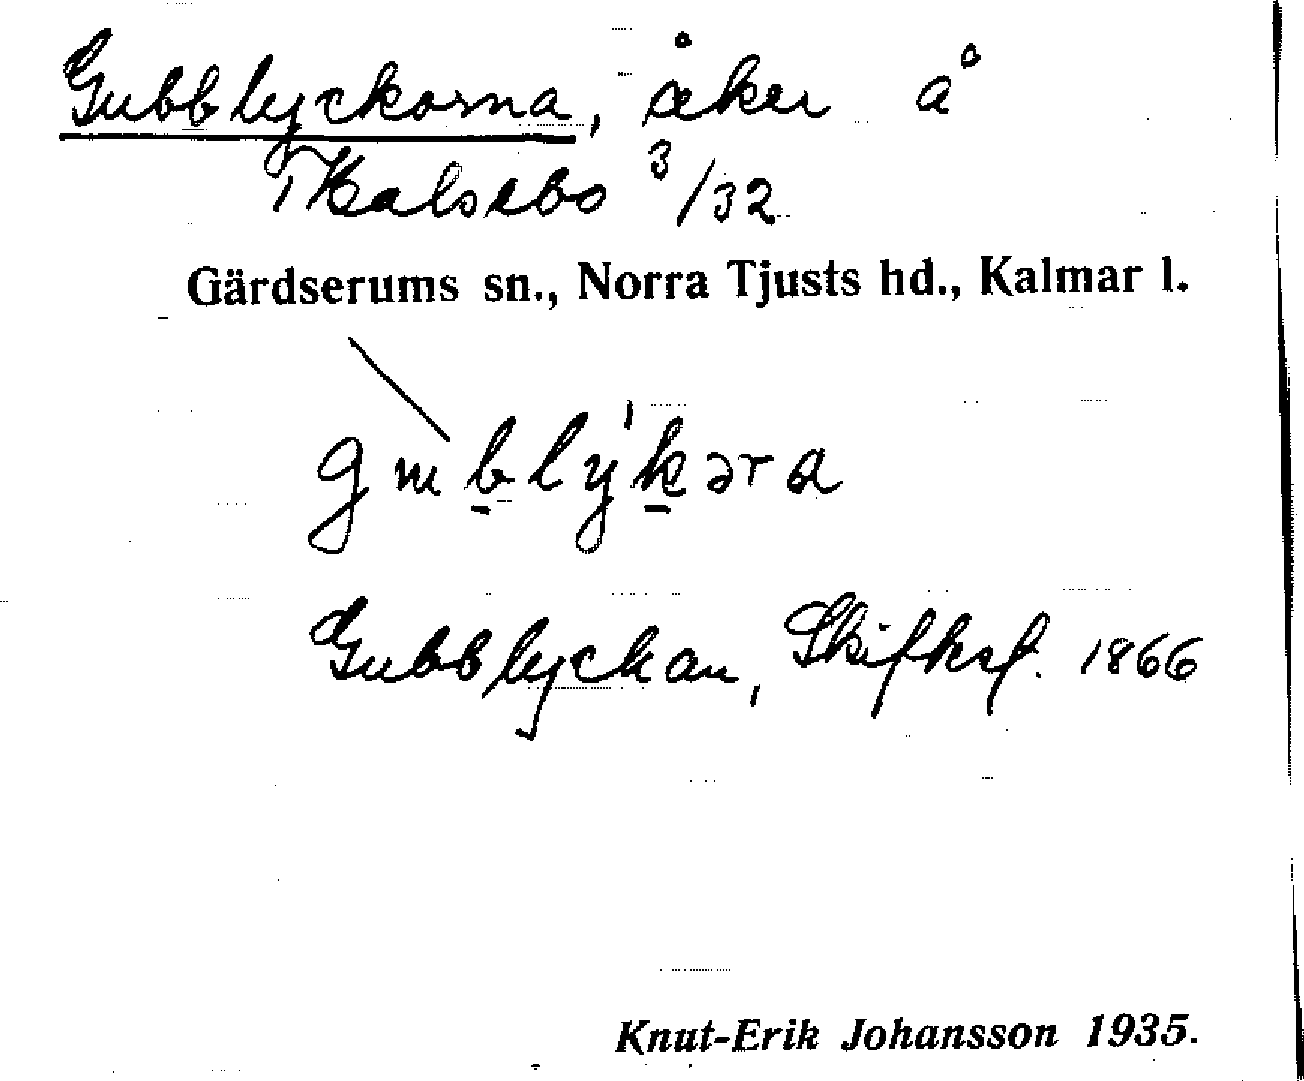 Gubblyckorna, åker å
Kalsebo 3/32
Gärdserums sn., Norra Tjusts hd., Kalmar l.
gɯb̲lýk̲əra
Gubblyckan, Skifksf. 1866
Knut-Erik Johansson 1935.